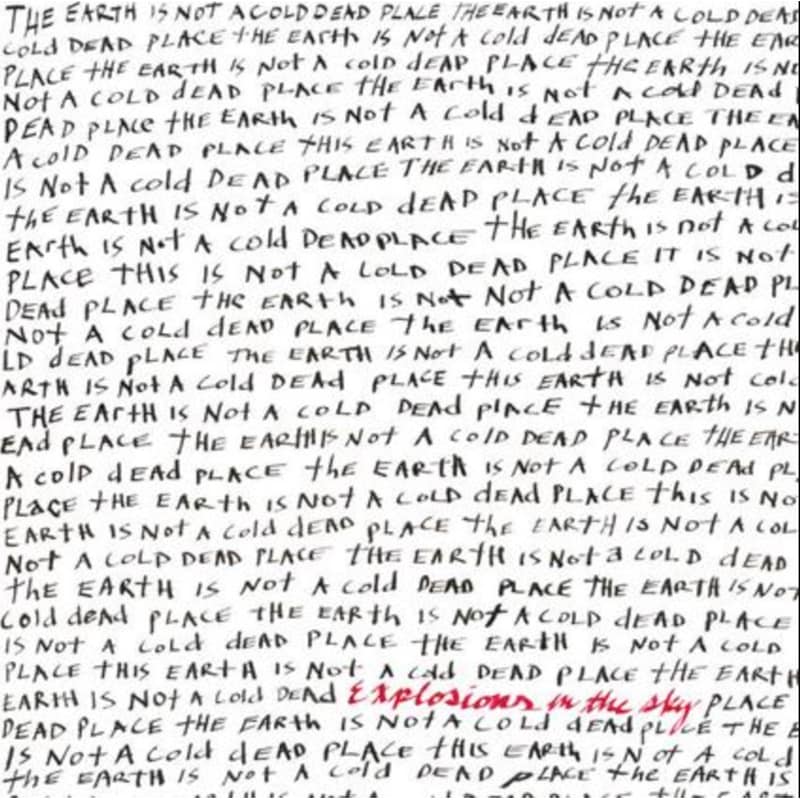 THE EARTH IS NOT A COLD DEAD PLACE THE EARTH IS NOT A COLD DEAD
COLD DEAD PLACE tHE EARth IS Not A Cold dEAD PLACE tHE EAR
PLACE tHE EARTH IS Not A cold dEAD PLACE tHE EARth IS NO
Not A COLD dEAD PLACE tHE EArth is Not A cold DEAD
DEAD pLACe tHE EARth IS Not A Cold dEAD PLACE THE EA
A COLD DEAD PLACE tHIS EARTH IS Not A Cold DEAD pLACE
IS Not A cold DEAD PLACE THE EARth IS Not A COLD d
tHE EARTH IS NOT A COLD dEAD PLACE thE EARTH IS
EArth IS Not A cold DEAD PLACE tHE EArth is not A COL
PLACE THIS IS Not A COLD DEAD PLACE IT IS Not
DEAd PLACE tHE EARth IS Not Not A COLD DEAD PL
Not A COLd dEAD PLACE the EArth is Not A Cold
LD dEAD pLACE THE EARTH IS Not A cold dEAD PLACE tH
ARTH IS Not A Cold DEAd PLACE tHIS EARTH IS Not Cold
THE EArtH IS Not A COLD DEAd plACE tHE EARth IS N
EAd pLACE tHE EARtH IS Not A COlD DEAD PLACE tHE EAR
A cOlD dEAd pLACE thE EARTh IS Not A COLD DEAd PL
PLACE tHE EARth is NOT A COLD dEAd PLACE this IS No
EARTH IS Not A Cold dEAD pLACE the EARTH IS Not A COL
Not A COLD DEAD PLACE tHE EARtH IS Not a COLD dEAD
thE EARTH IS Not A Cold DEAD PLACE THE EARTH IS Not
COld deAd PLACE tHE EARth IS Not A COLD dEAD PLACE
IS NOT A COLd dEAD PLACE tHE EARTH IS NOT A COLD
PLACE THIS EARtH IS Not A cold DEAD PLACE tHE EARTH
EARtH IS Not A Cold DEAD Explosions in the sky PLACE
DEAD PLACE tHE EARth IS NOT A COLd dEAd pLACE tHE E
IS Not A Cold dEAD PLACE tHIS EARth IS Not A COLd
thE EARTH IS Not A Cold DEAD pLACE the EARTH IS